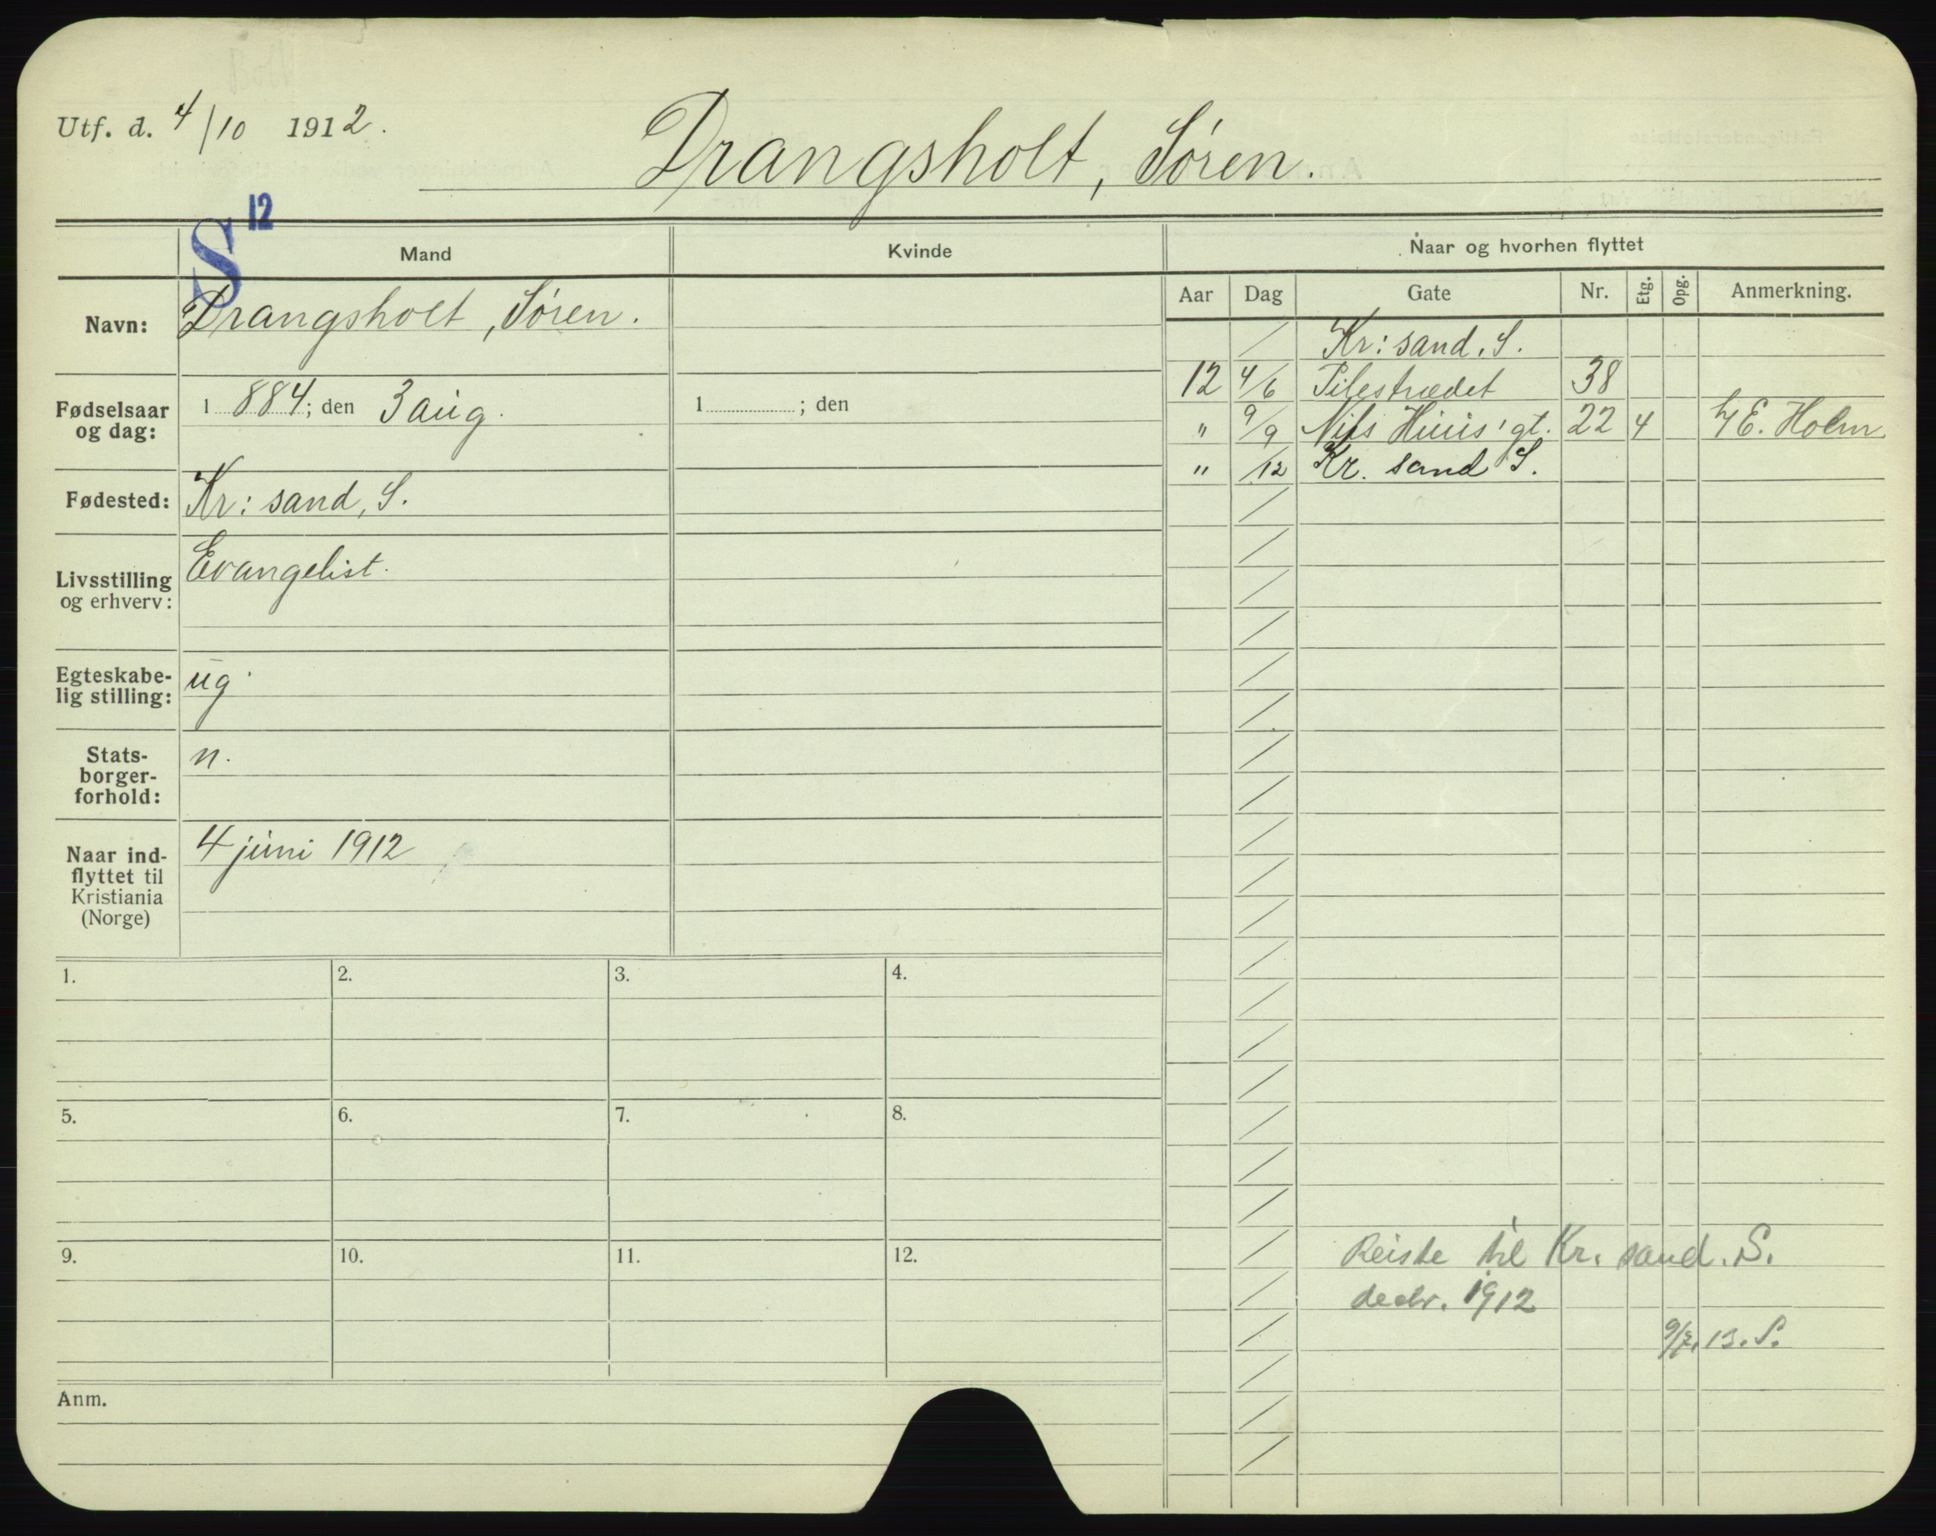 Utf. d. 4/10 1912.
Drangsholt, Søren.
S 12
Mand
Kvinde
Naar og hvorhen flyttet
Aar Dag Gate Nr. Etg. Opg. Anmerkning.
Navn: Drangsholt, Søren.
Fødselsaar og dag: 1884; den 3 aug.
1 ; den
Fødested: Kr: sand, S.
Livsstilling og erhverv: Evangelist.
Egteskabe-
lig stilling: ug
Stats-
borger-
forhold: n.
Naar ind-
flyttet til
Kristiania
(Norge) 4 juni 1912
/ Kr: sand, S.
12 4/6 Pilestrædet 38
" 9/9 Nils Huus' gt. 22 4 E. Holm
" /12 Kr. sand S.
1. 2. 3. 4.
5. 6. 7. 8.
9. 10. 11. 12.
Reiste til Kr. sand. S.
decbr. 1912
13. S.
Anm.